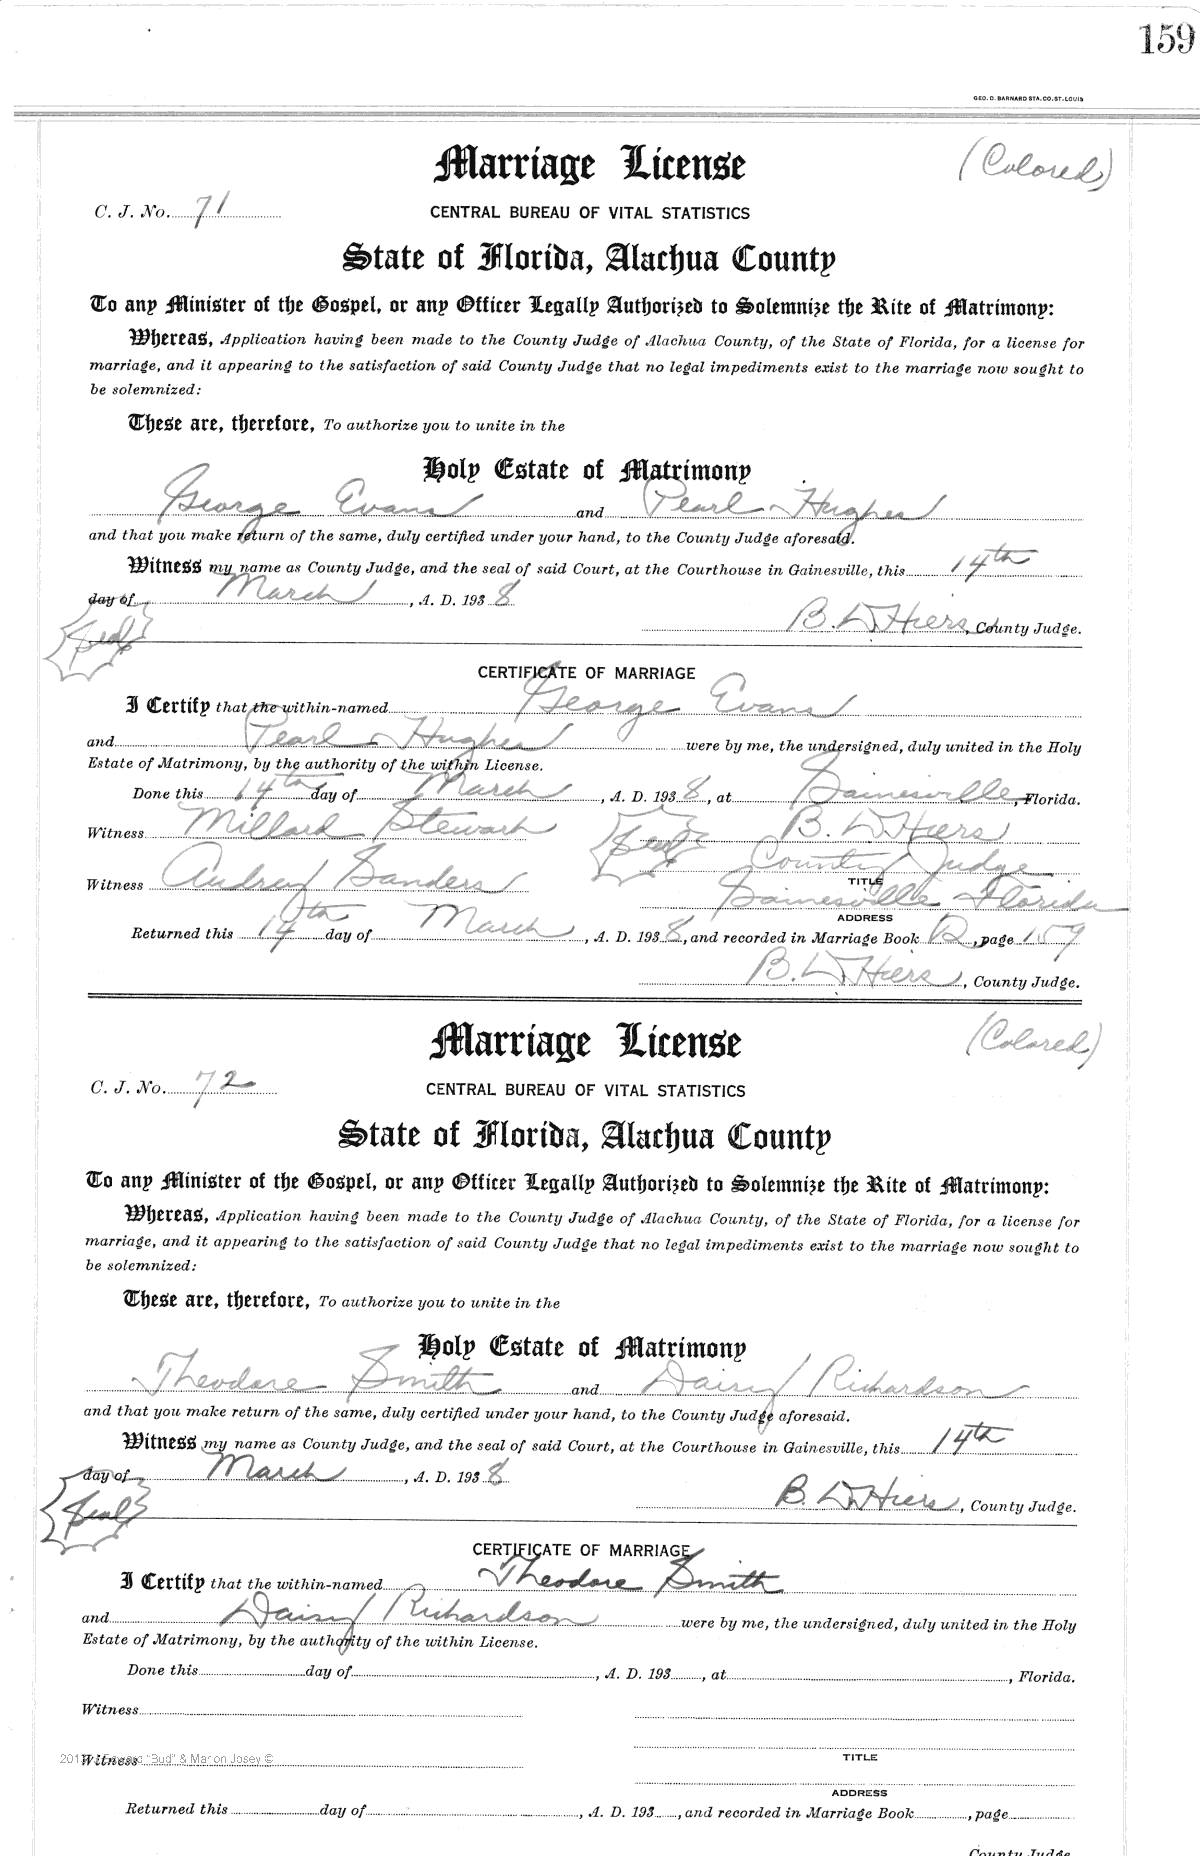 159
GEO. D. BARNARD STA. CO. ST. LOUIS
Marriage License (Colored)
C. J. No. 71 CENTRAL BUREAU OF VITAL STATISTICS
State of Florida, Alachua County
To any Minister of the Gospel, or any Officer Legally Authorized to Solemnize the Rite of Matrimony:
Whereas, Application having been made to the County Judge of Alachua County, of the State of Florida, for a license for
marriage, and it appearing to the satisfaction of said County Judge that no legal impediments exist to the marriage now sought to
be solemnized:
These are, therefore, To authorize you to unite in the
Holy Estate of Matrimony
George Evans and Pearl Hughes
and that you make return of the same, duly certified under your hand, to the County Judge aforesaid.
Witness my name as County Judge, and the seal of said Court, at the Courthouse in Gainesville, this 14th
day of March, A. D. 1938
Seal B. D. Hiers, County Judge.
CERTIFICATE OF MARRIAGE
I Certify that the within-named George Evans
and Pearl Hughes were by me, the undersigned, duly united in the Holy
Estate of Matrimony, by the authority of the within License.
Done this 14th day of March, A. D. 1938, at Gainesville, Florida.
Witness Millard Stewart Seal B. D. Hiers
County Judge
Witness Audrey Sanders TITLE
Gainesville Florida
ADDRESS
Returned this 14th day of March, A. D. 1938, and recorded in Marriage Book 12, page 159
B. D. Hiers, County Judge.
Marriage License (Colored)
C. J. No. 72 CENTRAL BUREAU OF VITAL STATISTICS
State of Florida, Alachua County
To any Minister of the Gospel, or any Officer Legally Authorized to Solemnize the Rite of Matrimony:
Whereas, Application having been made to the County Judge of Alachua County, of the State of Florida, for a license for
marriage, and it appearing to the satisfaction of said County Judge that no legal impediments exist to the marriage now sought to
be solemnized:
These are, therefore, To authorize you to unite in the
Holy Estate of Matrimony
Theodore Smith and Daisy Richardson
and that you make return of the same, duly certified under your hand, to the County Judge aforesaid.
Witness my name as County Judge, and the seal of said Court, at the Courthouse in Gainesville, this 14th
day of March, A. D. 1938
Seal B. D. Hiers, County Judge.
CERTIFICATE OF MARRIAGE
I Certify that the within-named Theodore Smith
and Daisy Richardson were by me, the undersigned, duly united in the Holy
Estate of Matrimony, by the authority of the within License.
Done this day of , A. D. 193 , at , Florida.
Witness
Witness TITLE
"Bud" & Marion Josey ©
ADDRESS
Returned this day of , A. D. 193 , and recorded in Marriage Book , page
County Judge.